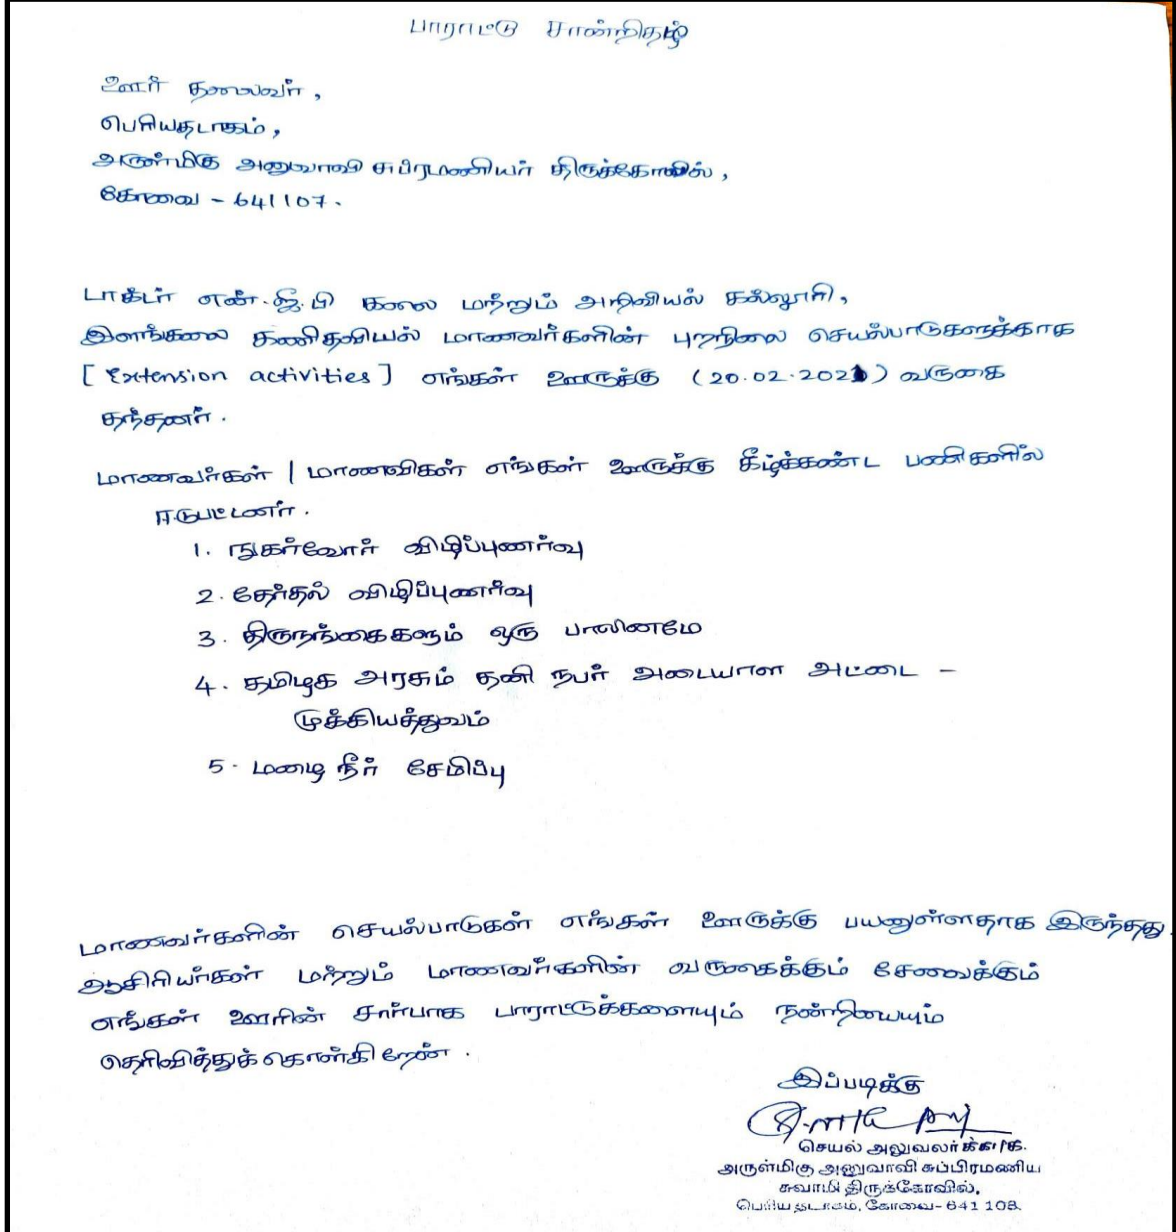 பாராட்டு சான்றிதழ்
ஊர் தலைவர்,
பெரியதடாகம்,
அருள்மிகு அனுவாவி சுப்ரமணியர் திருக்கோவில்,
கோவை - 641107.
டாக்டர் என்.ஜீ.பி கலை மற்றும் அறிவியல் கல்லூரி,
இளங்கலை கணிதவியல் மாணவர்களின் புறநிலை செயல்பாடுகளுக்காக
[Extension activities] எங்கள் ஊருக்கு (20.02.2021) வருகை
தந்தனர்.
மாணவர்கள் | மாணவிகள் எங்கள் ஊருக்கு கீழ்க்கண்ட பணிகளில்
ஈடுபட்டனர்.
1. நுகர்வோர் விழிப்புணர்வு
2. தேர்தல் விழிப்புணர்வு
3. திருநங்கைகளும் ஒரு பாலினமே
4. தமிழக அரசும் தனி நபர் அடையாள அட்டை -
முக்கியத்துவம்
5. மழை நீர் சேமிப்பு
மாணவர்களின் செயல்பாடுகள் எங்கள் ஊருக்கு பயனுள்ளதாக இருந்தது.
ஆசிரியர்கள் மற்றும் மாணவர்களின் வருகைக்கும் சேவைக்கும்
எங்கள் ஊரின் சார்பாக பாராட்டுக்களையும் நன்றியையும்
தெரிவித்துக்கொள்கிறேன்.
இப்படிக்கு
செயல் அலுவலர்
அருள்மிகு அனுவாவி சுப்பிரமணிய
சுவாமி திருக்கோவில்,
பெரியதடாகம், கோவை- 641 108.